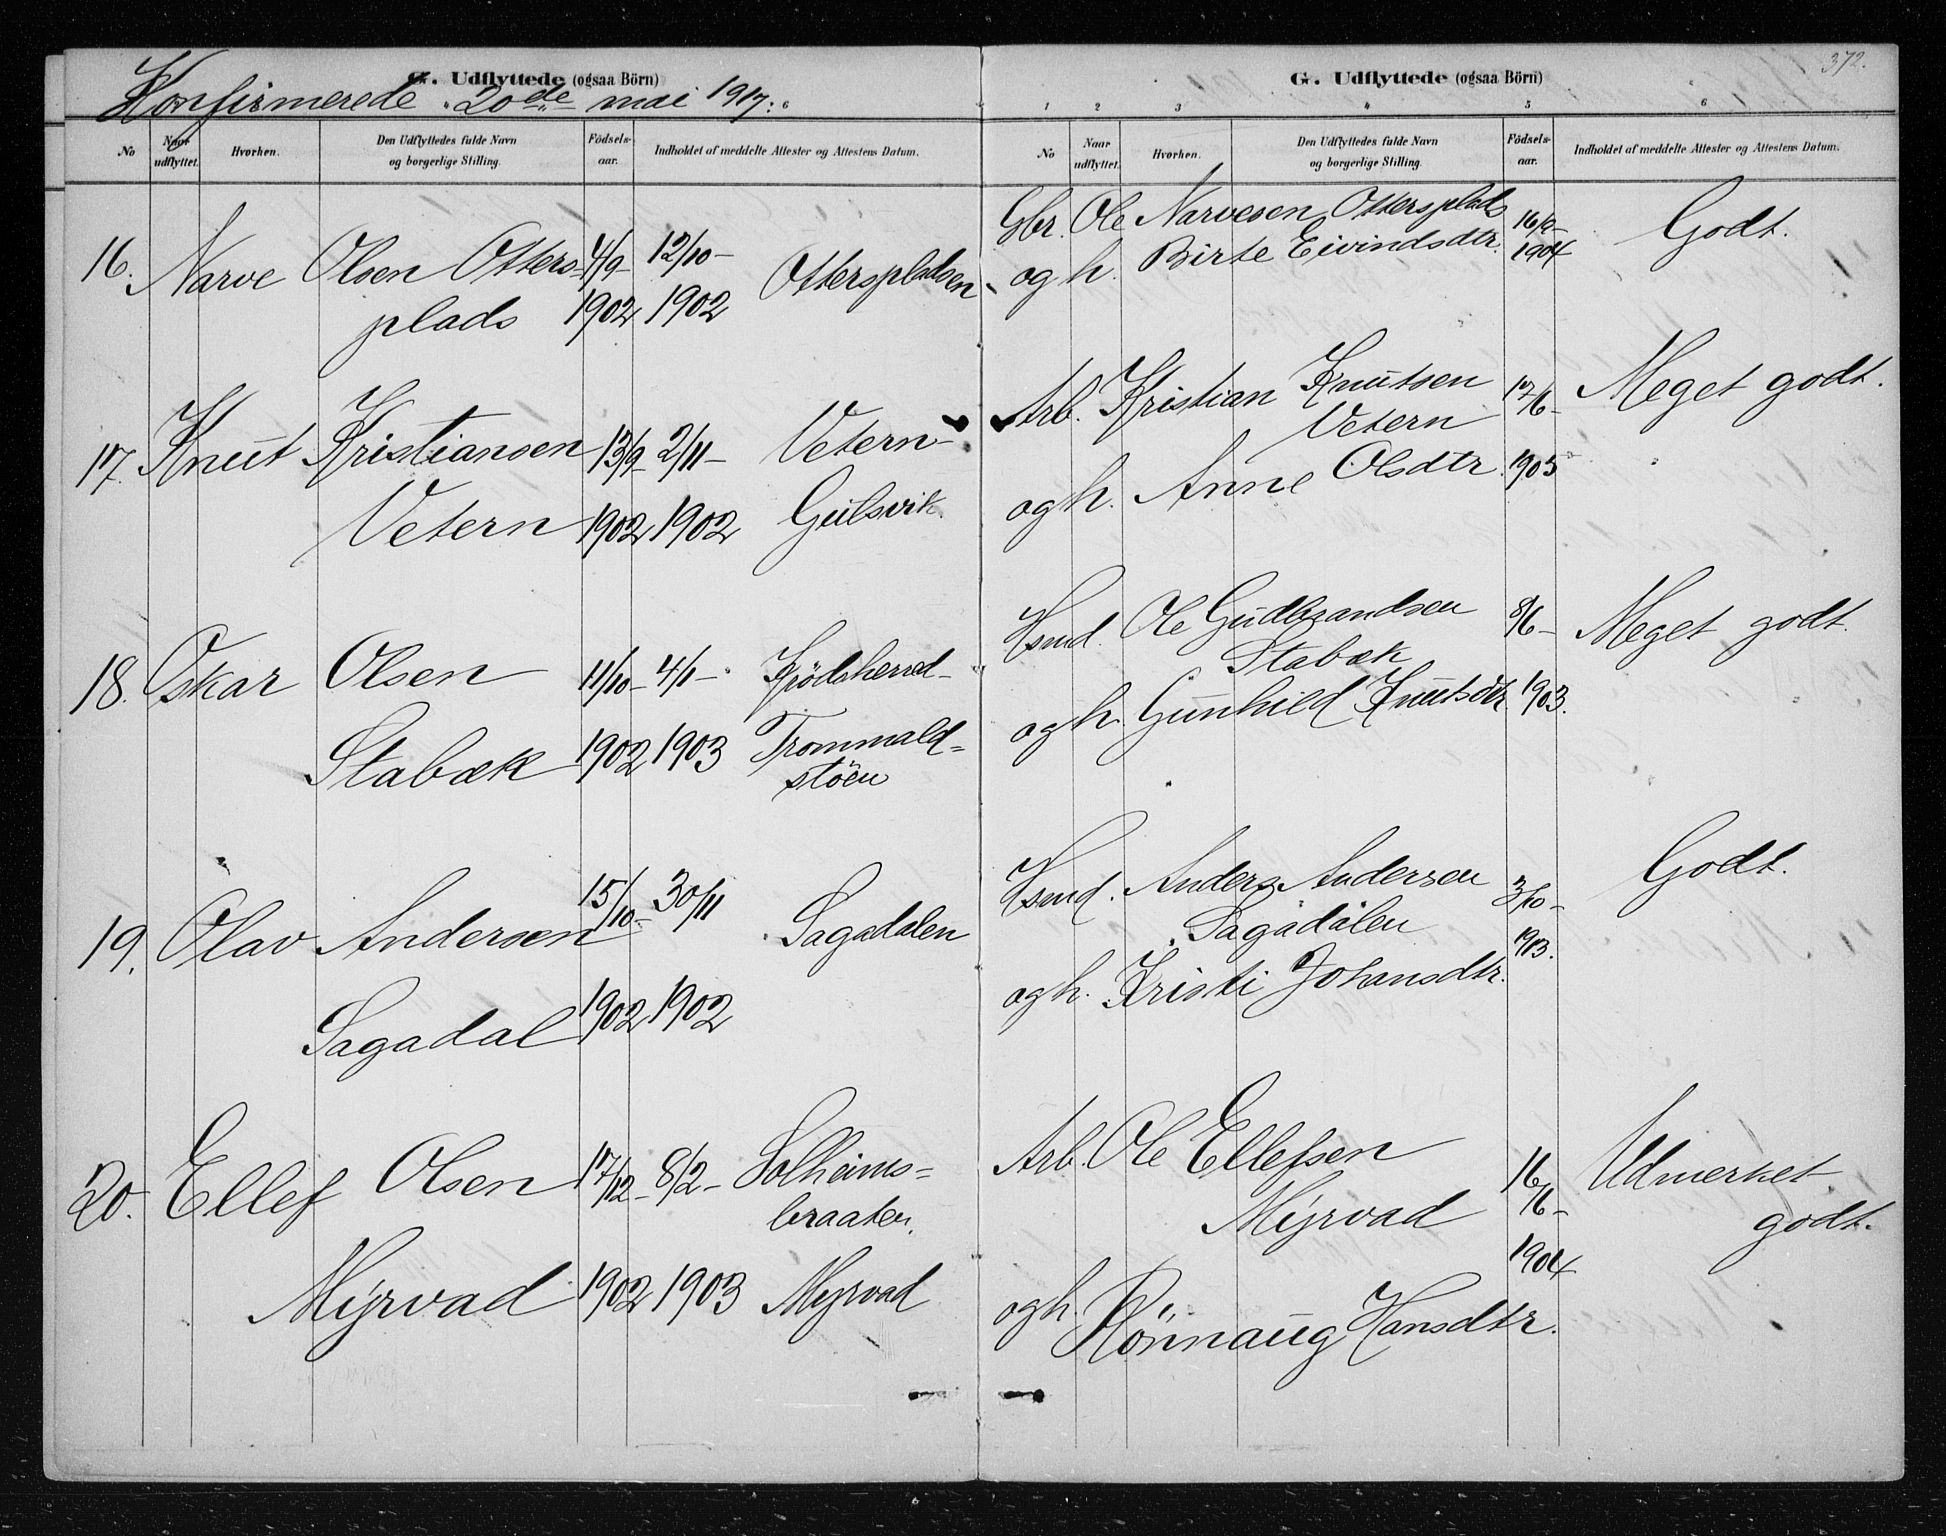 G. Udflyttede (ogsaa Börn)
Konfirmerede 20de mai 1917.
6
No
Naar udflyttet.
Hvorhen.
Den Udflyttedes fulde Navn
og borgerlige Stilling.
Födsels-
aar.
Indholdet af meddelte Attester og Attestens Datum.
16. Narve Olsen Otters- 4/9- 12/10- Otterspladsen
plads 1902 1902
17. Knut Kristiansen 13/9- 2/11- Vetern-
Vetern 1902 1902 Gulsvik.
18. Oskar Olsen 11/10- 4/1- Krödsherred-
Stabæk 1902 1903 Trommald=
stöen
19. Olav Andersen 15/10- 30/11 Sagadalen
Sagadal 1902 1902
20. Ellef Olsen 17/12- 8/2- Solheims=
braaten.
Myrvad 1902 1903 Myrvad
372.
G. Udflyttede (ogsaa Börn)
1 2 3 4 5 6
No
Naar
udflyttet.
Hvorhen.
Den Udflyttedes fulde Navn
og borgerlige Stilling.
Födsels-
aar.
Indholdet af meddelte Attester og Attestens Datum.
Gbr. Ole Narvesen Ottersplads Godt.
og h. Birte Eivindsdtr. 1904
Arb. Kristian Knutsen 17/6- Meget godt.
Vetern
og h. Anne Olsdtr. 1905
Hsmd. Ole Gudbrandsen 8/6- Meget godt.
Stabæk
og h. Gunhild Knutsdtr. 1903.
Hsmd. Anders Andersen 3/10- Godt.
Sagadalen
og h. Kristi Johansdtr. 1913.
Arb. Ole Ellefsen 16/6- Udmerket
Myrvad godt.
1904
og h. Rönnaug Hansdtr.